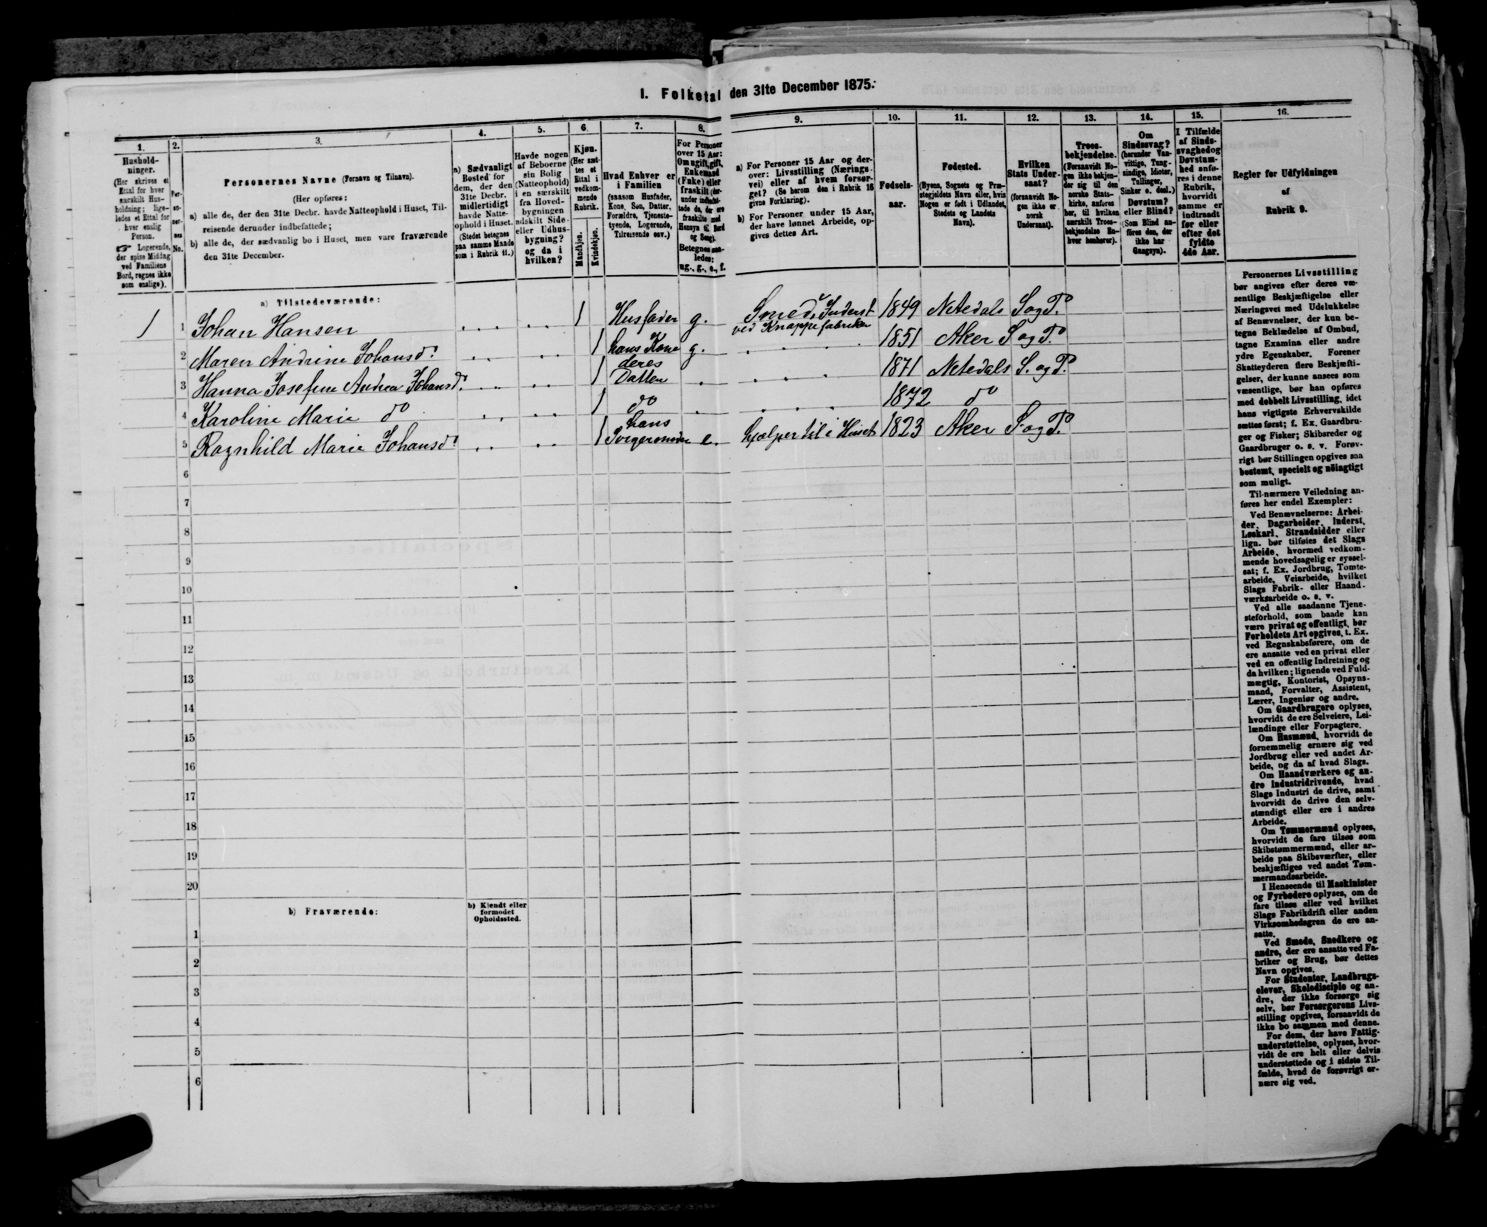 I. Folketal den 31te December 1875.
1.
Husholdninger.
(Her skrives et Ettal for hver særskilt Husholdning; ligeledes et Ettal for hver enslig Person.
☞ Logerende, der spise Middag ved Familiens Bord, regnes ikke som enslige).
2.
Personernes No.
3.
Personernes Navne (Fornavn og Tilnavn).
(Her opføres:
a) alle de, der den 31te Decbr. havde Natteophold i Huset, Tilreisende derunder indbefattede;
b) alle de, der sædvanlig bo i Huset, men vare fraværende den 31te December.
4.
a) Sædvanligt Bosted for dem, der den 31te Decbr. midlertidigt havde Natteophold i Huset.
(Stedet betegnes paa samme Maade som i Rubrik 11.)
5.
Havde nogen af Beboerne sin Bolig (Natteophold) i en særskilt fra Hovedbygningen adskilt Side- eller Udhusbygning? og da i hvilken?
6.
Kjøn.
(Her sættes et Ettal i vedkommende Rubrik.
Mandkjøn.
Kvindekjøn.
7.
Hvad Enhver er i Familien
(saasom Husfader, Kone, Søn, Datter, Forældre, Tjenestetyende, Logerende, Tilreisende osv.)
8.
For Personer over 15 Aar: Om ugift, gift, Enkemand (Enke) eller fraskilt
Betegnes saaledes: ug., g., e., f.
9.
a) For Personer 15 Aar og derover: Livsstilling (Næringsvei) eller af hvem forsørget? (Se herom den i Rubrik 16 givne Forklaring).
b) For Personer under 15 Aar, der have lønnet Arbeide, opgives dettes Art.
10.
Fødselsaar.
11.
Fødested.
(Byens, Sognets og Præstegjeldets Navn eller, hvis Nogen er født i Udlandet, Stedets og Landets Navn).
12.
Hvilken Stats Undersaat?
(forsaavidt Nogen ikke er norsk Undersaat).
13.
Troesbekjendelse.
(Forsaavidt Nogen ikke bekjender sig til den norske Statskirke, anføres her, til hvilken særskilt Troesbekjendelse Enhver henhører).
14.
Om Sindssvag?
(herunder Vanvittige, Tungsindige, Idioter, Tullinger, Sinker o. desl.)
Døvstum? eller Blind?
(Som Blind anføres den, der ikke har Gangsyn).
15.
I Tilfælde af Sindssvaghed og Døvstumhed anføres i denne Rubrik, hvorvidt samme er indtraadt før eller efter det fyldte 4de Aar.
16.
Regler for Udfyldningen af Rubrik 9.
a) Tilstedeværende:
1 1 Johan Hansen 1 Husfader g. Smed, Inderst ved Knappefabriken 1849 Nitedals S og P.
2 Maren Andrine Johansd. 1 hans Kone g. 1851 Aker S og P.
3 Hanna Josefine Andrea Johansd. 1 deres Datter 1871 Nitedals S. og P.
4 Karoline Marie do 1 do 1872 do
5 Ragnhild Marie Johansd. 1 hans Svigermoder e. hjælper til i Huset 1823 Aker S og P.
6
7
8
9
10
11
12
13
14
15
16
17
18
19
20
b) Fraværende:
b) Kjendt eller formodet Opholdssted.
1
2
3
4
5
6
Personernes Livsstilling bør angives efter deres væsentlige Beskjæftigelse eller Næringsvei med Udelukkelse af Benævnelser, der kun betegne Beklædelse af Ombud, tagne Examina eller andre ydre Egenskaber. Forener Skatteyderen flere Beskjæftigelser, der kunne ansees som væsentlige, bør han opføres med dobbelt Livsstilling, idet hans vigtigste Erhvervskilde sættes først; f. Ex. Gaardbruger og Fisker; Skibsreder og Gaardbruger o. s. v. Forøvrigt bør Stillingen opgives saa bestemt, specielt og nøiagtigt som muligt.
Til nærmere Veiledning anføres her endel Exempler:
Ved Benævnelserne: Arbeider, Dagarbeider, Inderst, Løskarl, Strandsidder eller lign. bør tilføies det Slags Arbeide, hvormed vedkommende hovedsagelig er sysselsat; f. Ex. Jordbrug, Tomtearbeide, Veiarbeide, hvilket Slags Fabrik- eller Haandværksarbeide o. s. v.
Ved alle saadanne Tjenesteforhold, som baade kan være privat og offentligt, bør Forholdets Art opgives, t. Ex. ved Regnskabsførere, om de ere ansatte ved en privat eller ved en offentlig Indretning og da hvilken; lignende ved Fuldmægtig, Kontorist, Opsynsmand, Forvalter, Assistent, Lærer, Ingeniør og andre.
Om Gaardbrugere oplyses, hvorvidt de ere Selveiere, Leilændinge eller Forpagtere.
Om Husmænd, hvorvidt de fornemmelig ernære sig ved Jordbrug eller ved andet Arbeide, og da af hvad Slags.
Om Haandværkere og andre Industridrivende, hvad Slags Industri de drive, samt hvorvidt de drive den selvstændigt eller ere i andres Arbeide.
Om Tømmermænd oplyses, hvorvidt de fare tilsøs som Skibstømmermænd, eller arbeide paa Skibsværfter, eller beskjæftiges ved andet Tømmermandsarbeide.
I Henseende til Maskinister og Fyrbødere oplyses, om de fare tilsøs eller ved hvilket Slags Fabrikdrift eller anden Virksomhedsgren de ere ansatte.
Ved Smede, Snedkere og andre, der ere ansatte ved Fabriker og Brug, bør dettes Navn opgives.
For Studenter, Landbrugselever, Skoledisciple og andre, der ikke forsørge sig selv, bør Forsørgerens Livsstilling opgives, forsaavidt de ikke bo sammen med denne.
For dem, der have Fattigunderstøttelse, oplyses, hvorvidt de ere helt eller delvis understøttede og i sidste Tilfælde, hvad de forøvrigt ernære sig ved.